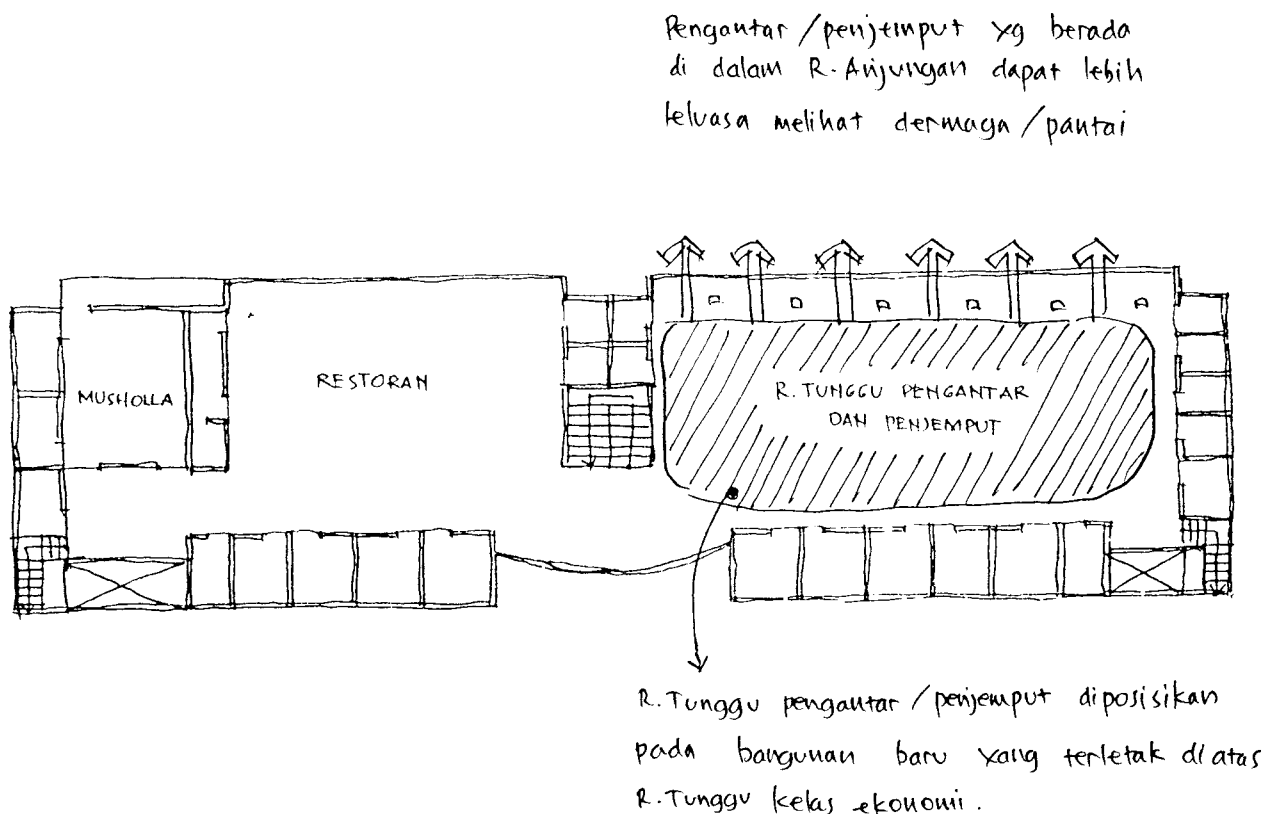 Pengantar / penjemput yg berada
di dalam R. Anjungan dapat lebih
leluasa melihat dermaga / pantai
MUSHOLLA
RESTORAN
R. TUNGGU PENGANTAR
DAN PENJEMPUT
R. Tunggu pengantar / penjemput diposisikan
pada bangunan baru yang terletak diatas
R. Tunggu kelas ekonomi.